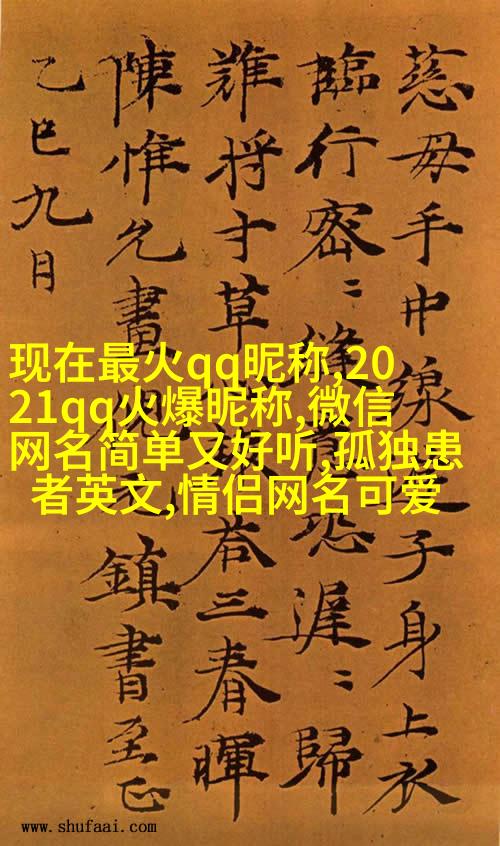 慈母手中線子身上衣
臨行密〻縫恐遲〻歸
難将寸草荅三春暉
陳惟允畫倪元鎮書至正
乙巳九月
现在最火qq昵称,20
21qq火爆昵称,微信
网名简单又好听,孤独患
者英文,情侣网名可爱
www.shufaai.com